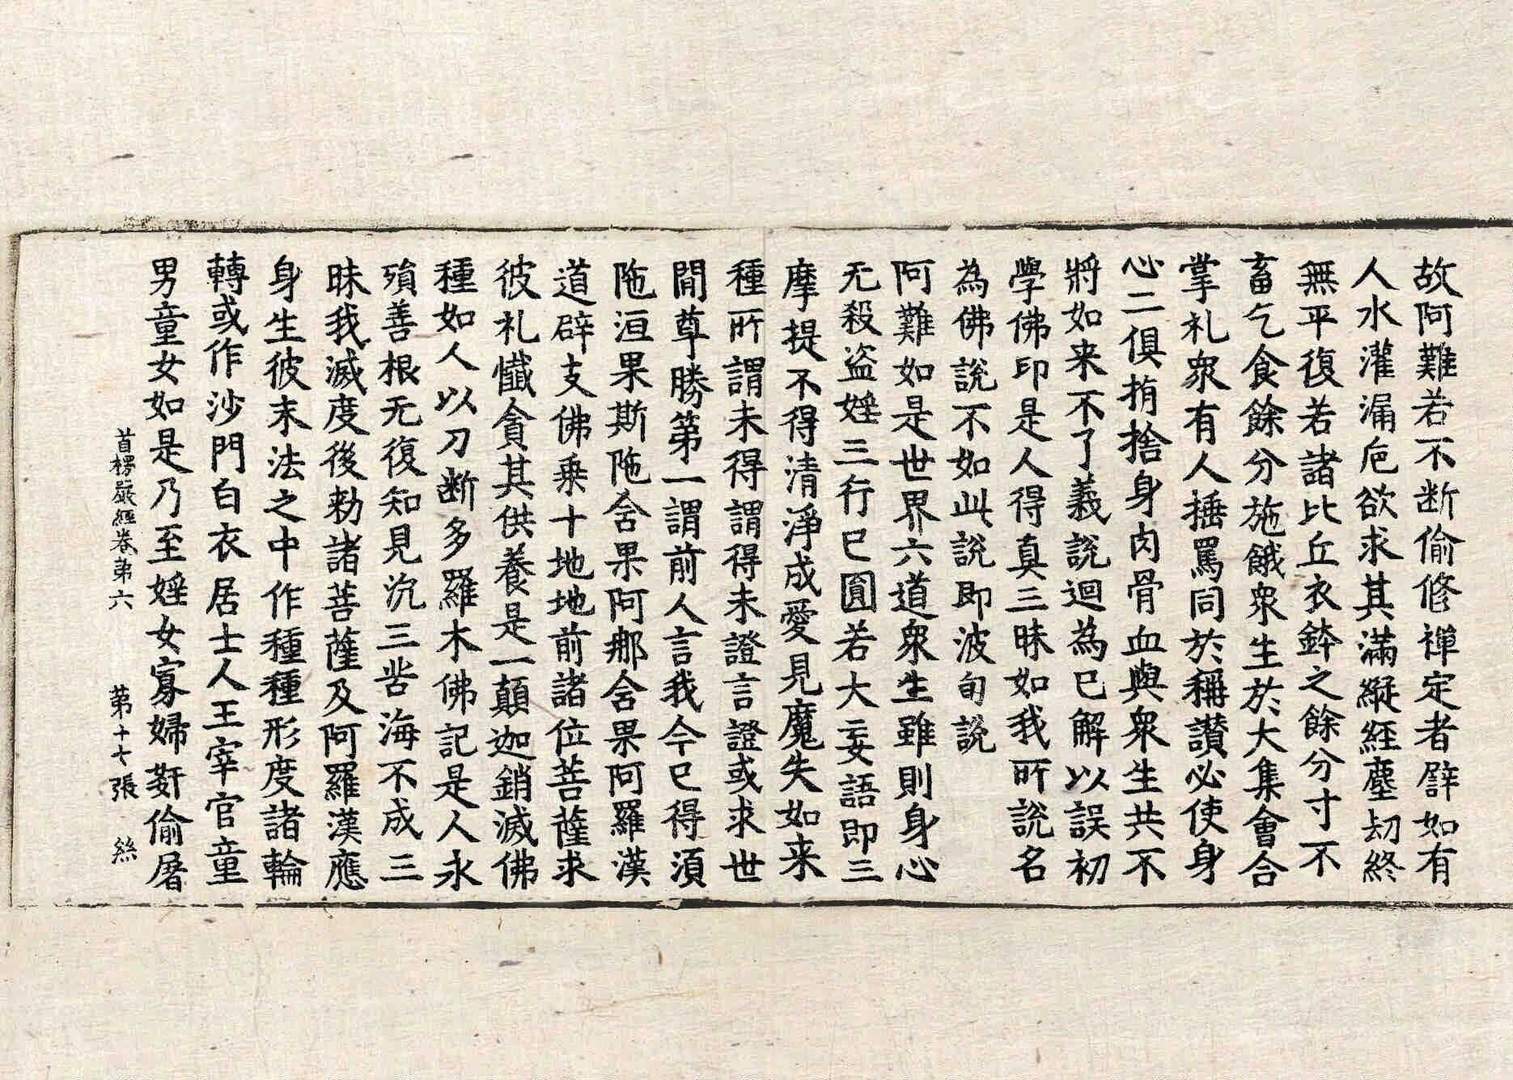 故阿難若不断偷修禪定者譬如有
人水灌漏卮欲求其滿縱經塵刼終
無平復若諸比丘衣鉢之餘分寸不
畜乞食餘分施餓衆生於大集會合
掌礼衆有人捶罵同於稱讃必使身
心二俱捐捨身肉骨血與衆生共不
將如来不了義說迴為已解以誤初
學佛印是人得真三昧如我所說名
為佛說不如此說即波旬說
阿難如是世界六道衆生雖則身心
无殺盗婬三行已圓若大妄語即三
摩提不得清淨成愛見魔失如来
種所謂未得謂得未證言證或求世
間尊勝第一謂前人言我今已得湏
陁洹果斯陁含果阿那含果阿羅漢
道辟支佛乗十地地前諸位菩薩求
彼礼懺貪其供養是一顛迦銷滅佛
種如人以刀断多羅木佛記是人永
殞善根无復知見沉三苦海不成三
昧我滅度後勑諸菩薩及阿羅漢應
身生彼末法之中作種種形度諸輪
轉或作沙門白衣居士人王宰官童
男童女如是乃至婬女寡婦姧偷屠
首楞嚴經卷第六 第十七張 絲